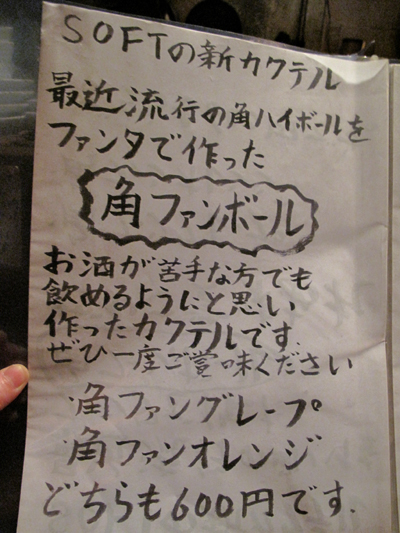 SOFTの新カクテル
最近流行の角ハイボールを
ファンタで作った
角ファンボール
お酒が苦手な方でも
飲めるようにと思い
作ったカクテルです.
ぜひ一度ご賞味ください
角ファングレープ
角ファンオレンジ
どちらも600円です.